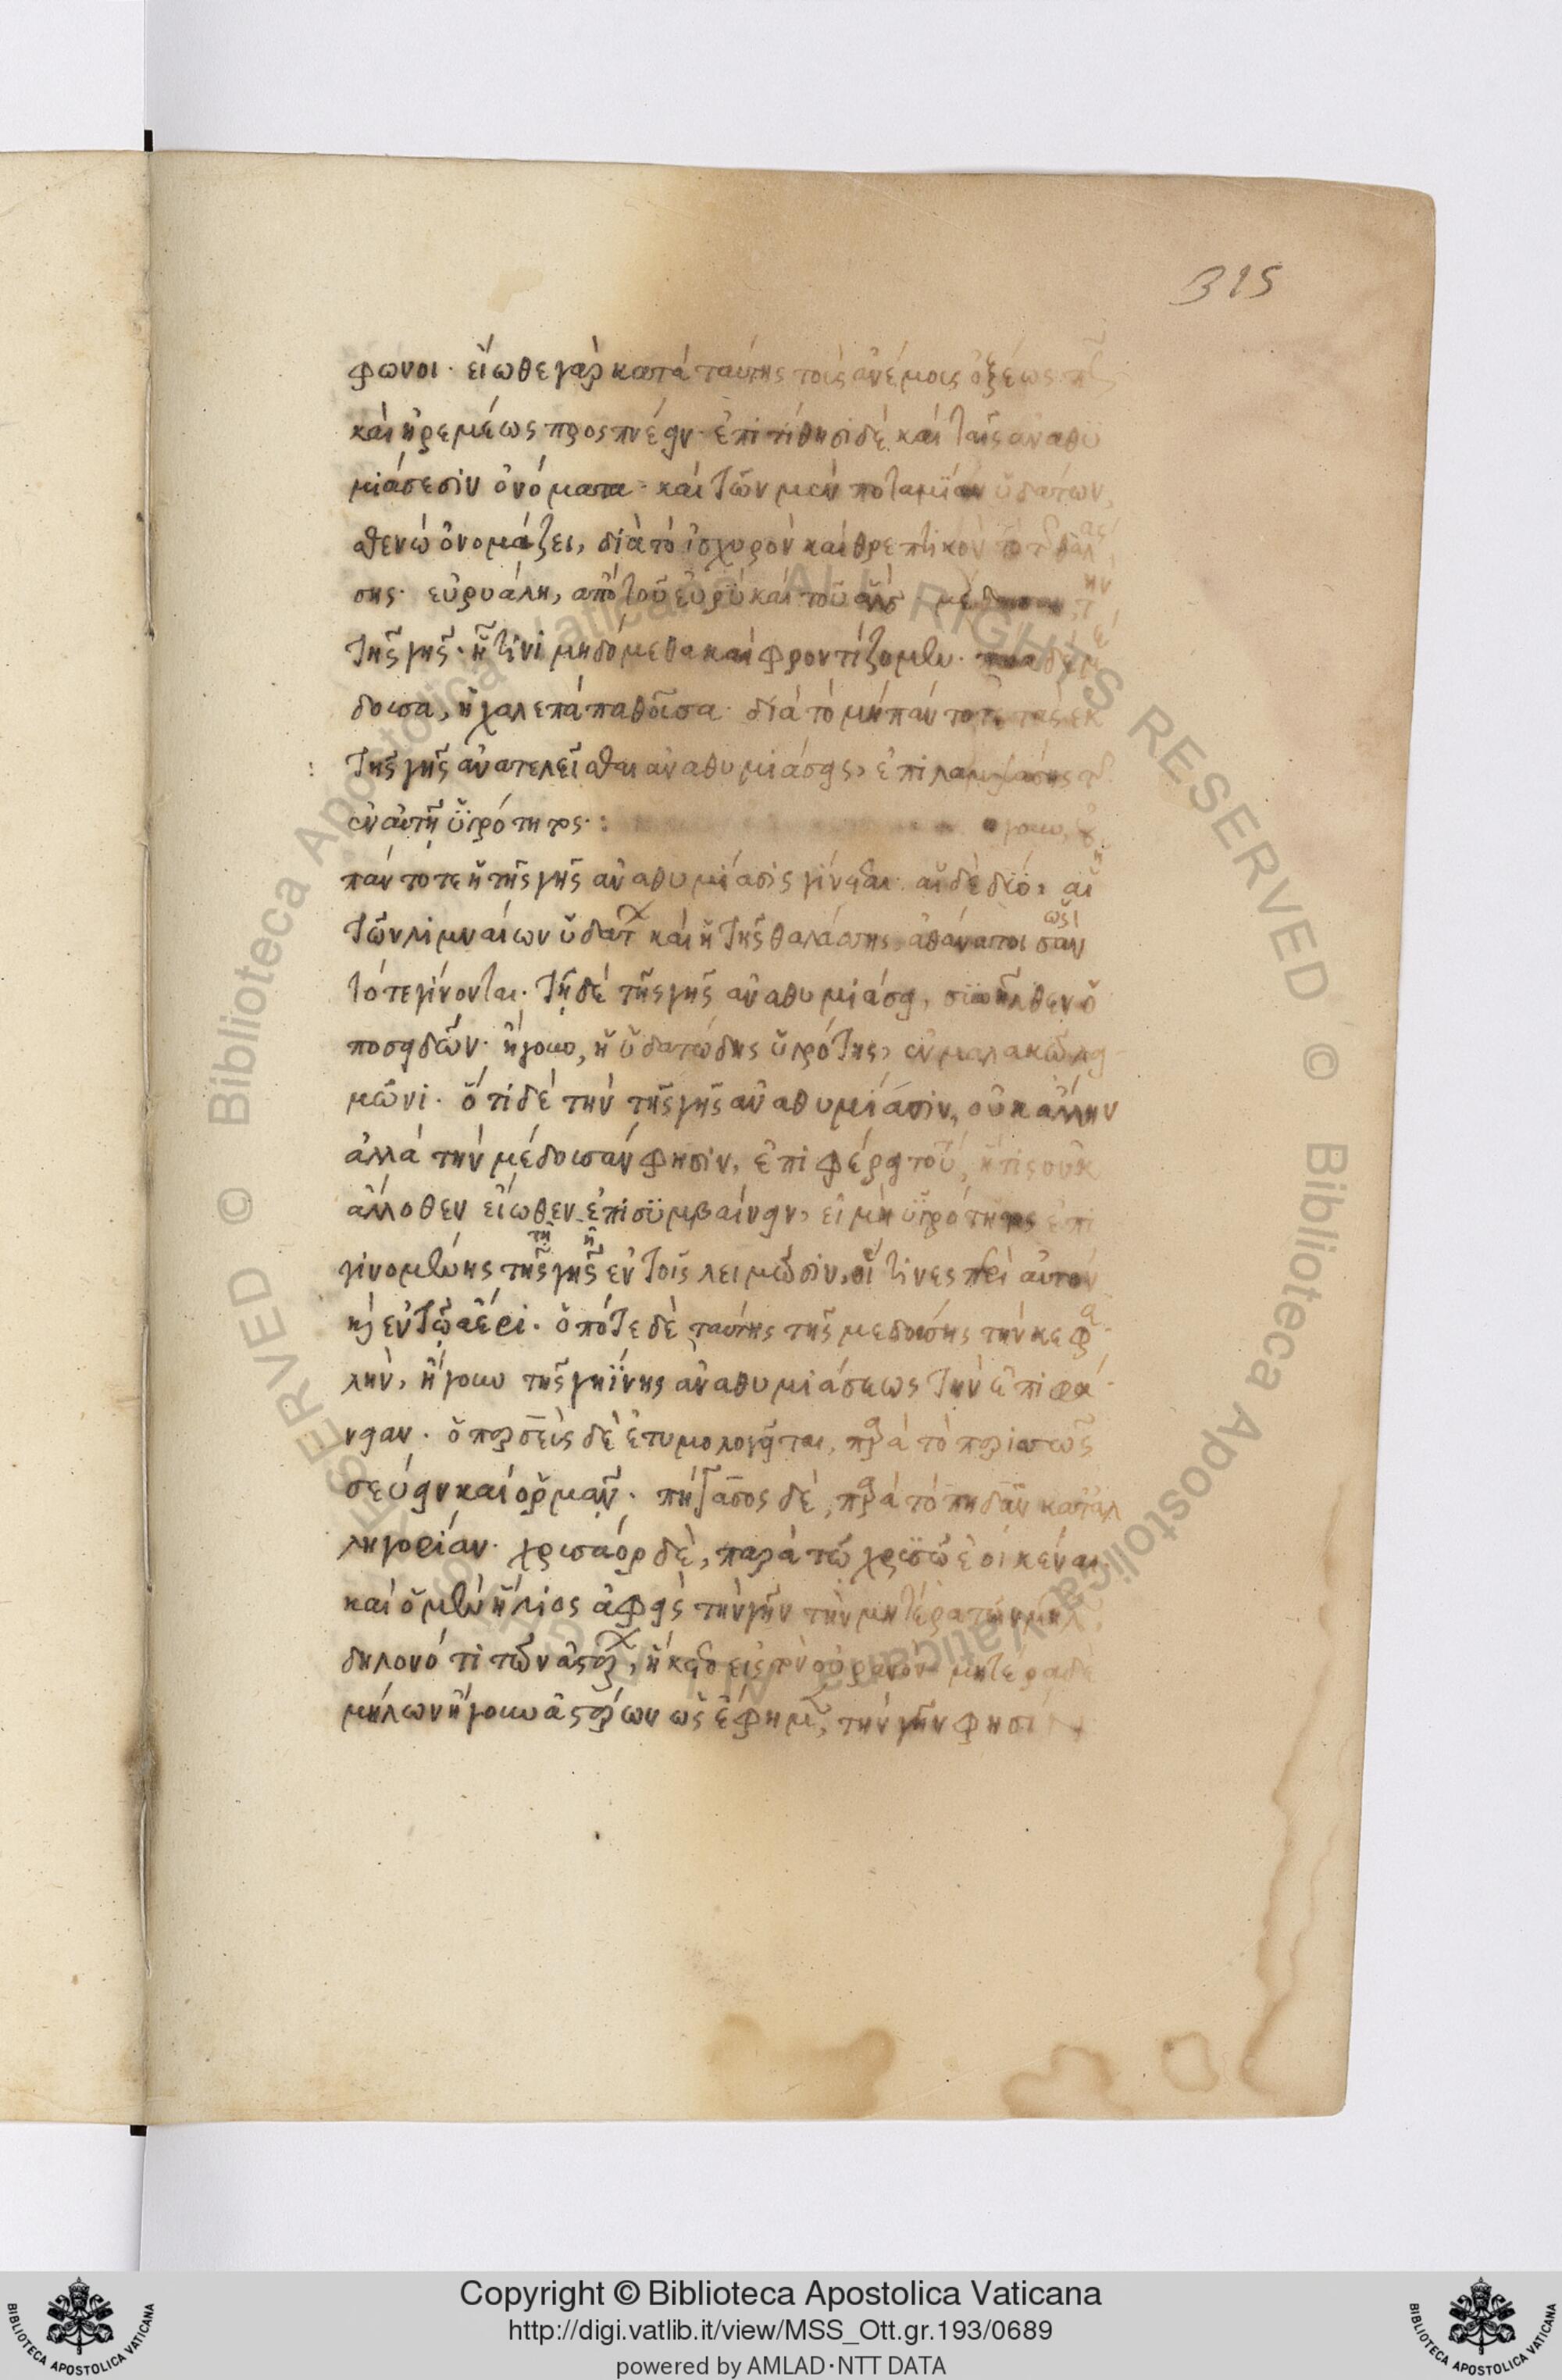 315
φωνοι· εἴωθε γὰρ κατὰ ταύτης τοῖς ἀνέμοις ὀξέως
καὶ ἠρεμέως προσπνέειν· ἐπιτίθησι δὲ καὶ ταῖς ἀναθυ
μιάσεσιν ὀνόματα· καὶ τῶν μὲν ποταμίων ὑδάτων,
σθενὼ ὀνομάζει, διὰ τὸ ἰσχυρὸν καὶ θρεπτικὸν θαλάσ
σης· εὐρυάλη, ἀπὸ τοῦ εὐρὺ καὶ τοῦ ἁλὸς
τῆς γῆς· ᾗ τινι μηδόμεθα καὶ φροντίζομεν·
δουσα, ἡ χαλεπὰ παθοῦσα· διὰ τὸ μὴ πάντοτε τὰς ἐκ
τῆς γῆς ἀνατελεῖσθαι ἀναθυμιάσεις, ἐπιλαμψάσης
ἐν αὐτῇ ὑγρότητος:
πάντοτε ἡ τῆς γῆς ἀναθυμίασις γίνεται· αἱ δὲ δύο, αἱ
τῶν λιμναίων ὑδάτων καὶ ἡ τῆς θαλάσσης, ἀθάνατοι ὡς
τότε γίνονται· τῇ δὲ τῆς γῆς ἀναθυμιάσει, συνῆλθεν ὁ
ποσειδῶν· ἤγουν, ἡ ὑδατώδης ὑγρότης, ἐν μαλακῷ λει
μῶνι· ὅτι δὲ τὴν τῆς γῆς ἀναθυμίασιν, οὐκ ἄλλην
ἀλλὰ τὴν μέδουσάν φησιν, ἐπιφέρει τοῦ, ἥτις οὐκ
ἄλλοθεν εἴωθεν ἐπισυμβαίνειν, εἰ μὴ ὑγρότητος ἐπι
γινομένης τῆς γῆς ἐν τοῖς λειμῶσιν, οἵτινες περὶ αὐτὸν
καὶ ἐν τῷ ἀέρι· ὁπότε δὲ ταύτης τῆς μεδούσης τὴν κεφα
λὴν, ἤγουν τῆς γηΐνης ἀναθυμιάσεως τὴν ἐπιφά
νειαν· ὁ περσεὺς δὲ ἐτυμολογεῖται, παρὰ τὸ περισσῶς
σεύειν καὶ ὁρμᾶν· πήγασος δὲ, παρὰ τὸ πηδᾶν κατ' ἀλ
ληγορίαν· χρυσάορ δὲ, παρὰ τῷ χρυσῷ ἐοικέναι·
καὶ ὁ μὲν ἥλιος ἀφεὶς τὴν γῆν τὴν μητέρα τῶν μήλων
δηλονότι τῶν ἀστέρων, ἧκεν εἰς τὸν οὐρανόν· μητέρα δὲ
μήλων ἤγουν ἀστέρων ὡς ἔφημεν, τὴν γῆν φησιν
Copyright © Biblioteca Apostolica Vaticana
http://digi.vatlib.it/view/MSS_Ott.gr.193/0689
powered by AMLAD·NTT DATA
BIBLIOTECA APOSTOLICA VATICANA
BIBLIOTECA APOSTOLICA VATICANA